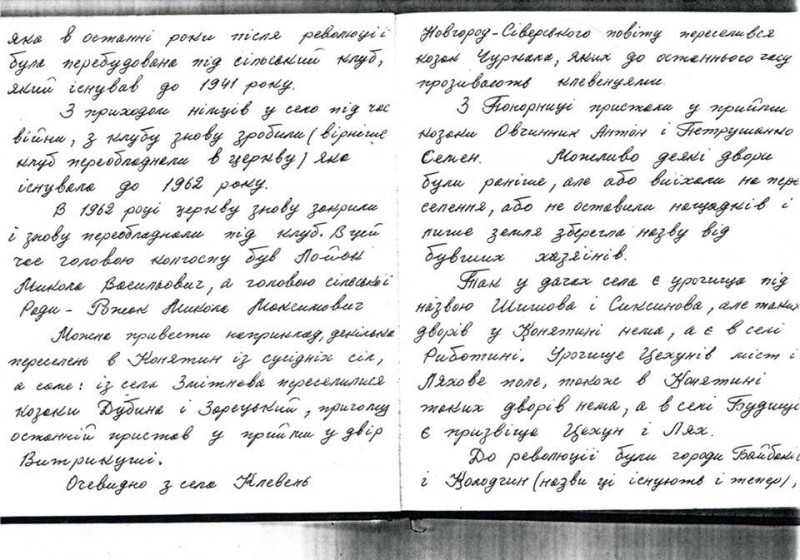 яка в останні роки після революції
була перебудована під сільський клуб,
який існував до 1941 року.
З приходом німців у село під час
війни, з клубу знову зробили (вірніше
клуб переобладнали в церкву) яка
існувала до 1962 року.
В 1962 році церкву знову закрили
і знову переобладнали під клуб. В цей
час головою колгоспу був Лойок
Микола Васильович, а головою сільської
Ради - Рожок Микола Максимович
Можна привести наприклад, декілька
переселень в Конятин із сусідніх сіл,
а саме: із села Зміжнова переселилися
козаки Дубина і Зарецький, причому
останній пристав у прийми у двір
Витрикуші.
Очевидно з села Клевень
Новгород-Сіверського повіту переселився
козак Чуркала, яких до останнього часу
прозивають клевенцями.
З Понорниці пристали у прийми
козаки Овчинник Антон і Петрушанко
Семен. Можливо деякі двори
були раніше, але або виїхали на пере
селення, або не оставили нащадків і
лише земля зберегла назву від
бувших хазяїнів.
Так у дачах села є урочища під
назвою Шишова і Сиксинова, але таких
дворів у Конятині нема, а є в селі
Риботині. Урочище Цехунів міст і
Ляхове поле, також в Конятині
таких дворів нема, а в селі Будищі
є призвіща Цехун і Лях.
До революції були городи Байбакі
і Колодчин (назви ці існують і тепер),